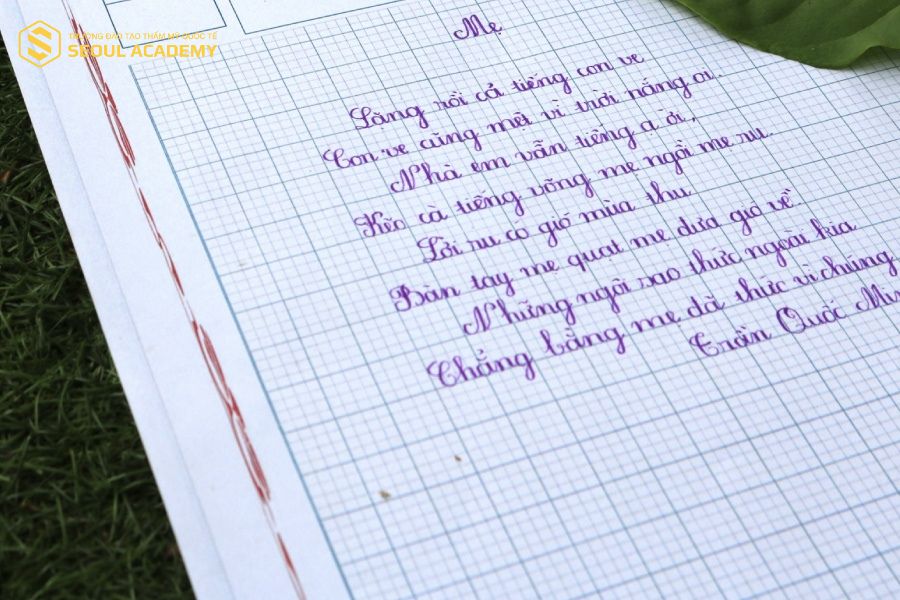 TRƯỜNG ĐÀO TẠO THẨM MỸ QUỐC TẾ
SEOUL ACADEMY
Mẹ
Lặng rồi cả tiếng con ve
Con ve cũng mệt vì trời nắng oi.
Nhà em vẫn tiếng ạ ời,
Kẽo cà tiếng võng mẹ ngồi mẹ ru.
Lời ru có gió mùa thu
Bàn tay mẹ quạt mẹ đưa gió về.
Những ngôi sao thức ngoài kia
Chẳng bằng mẹ đã thức vì chúng
Trần Quốc